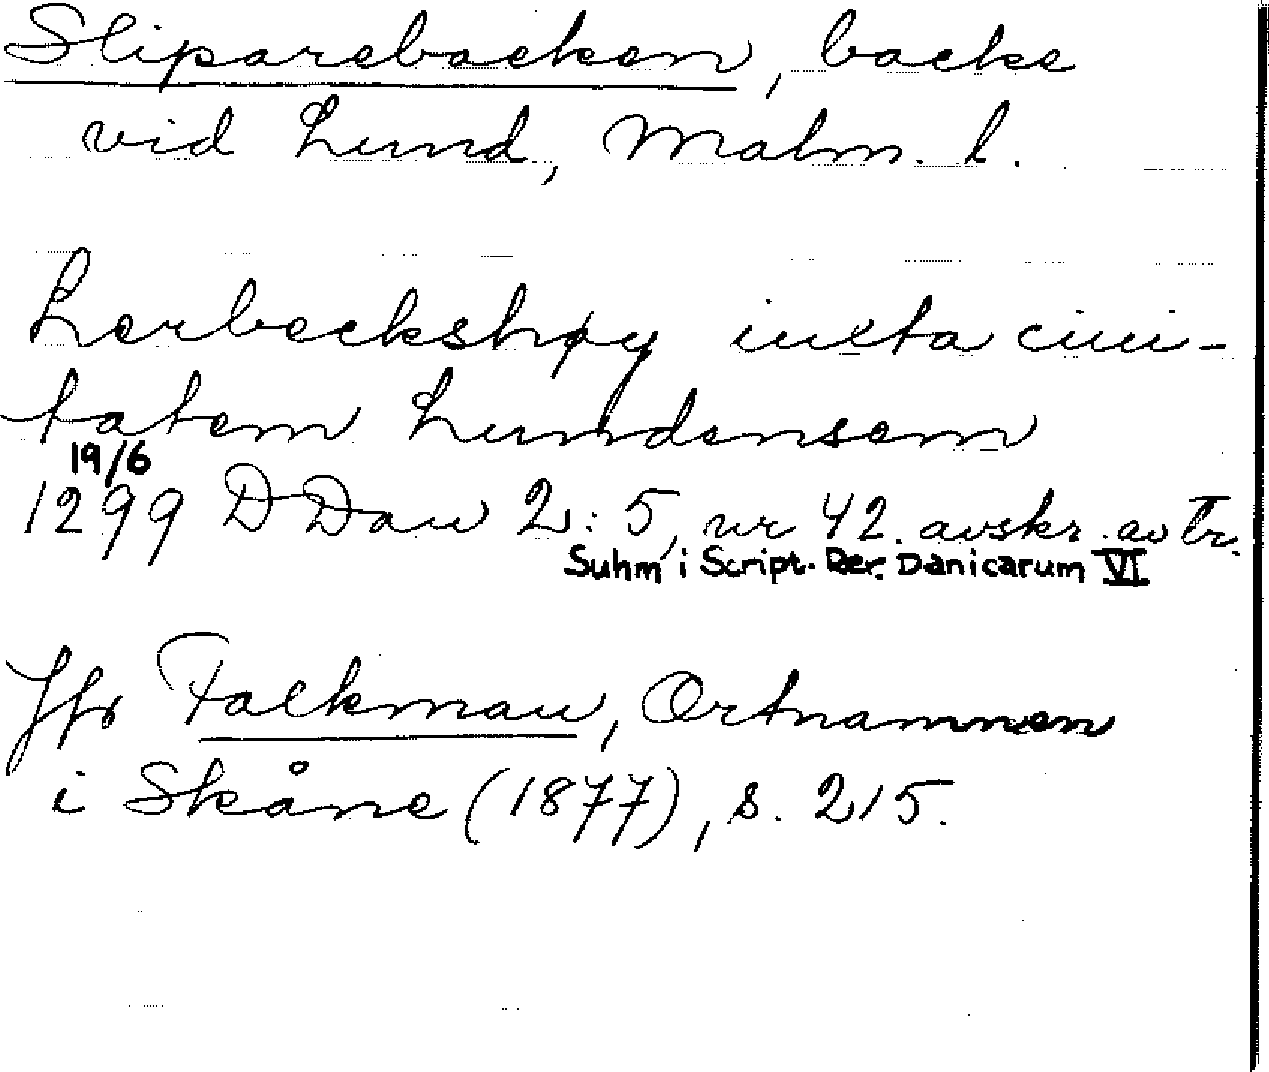 Sliparebacken, backe
vid Lund, Malm. l.
Lerbeckshøy iuxta ciui-
tatem Lundensem
19/6
1299 DDan 2:5, nr 42. avskr. av tr.
Suhm i Script. Rer. Danicarum VI
Jfr Falkman, Ortnamnen
i Skåne (1877), s. 215.